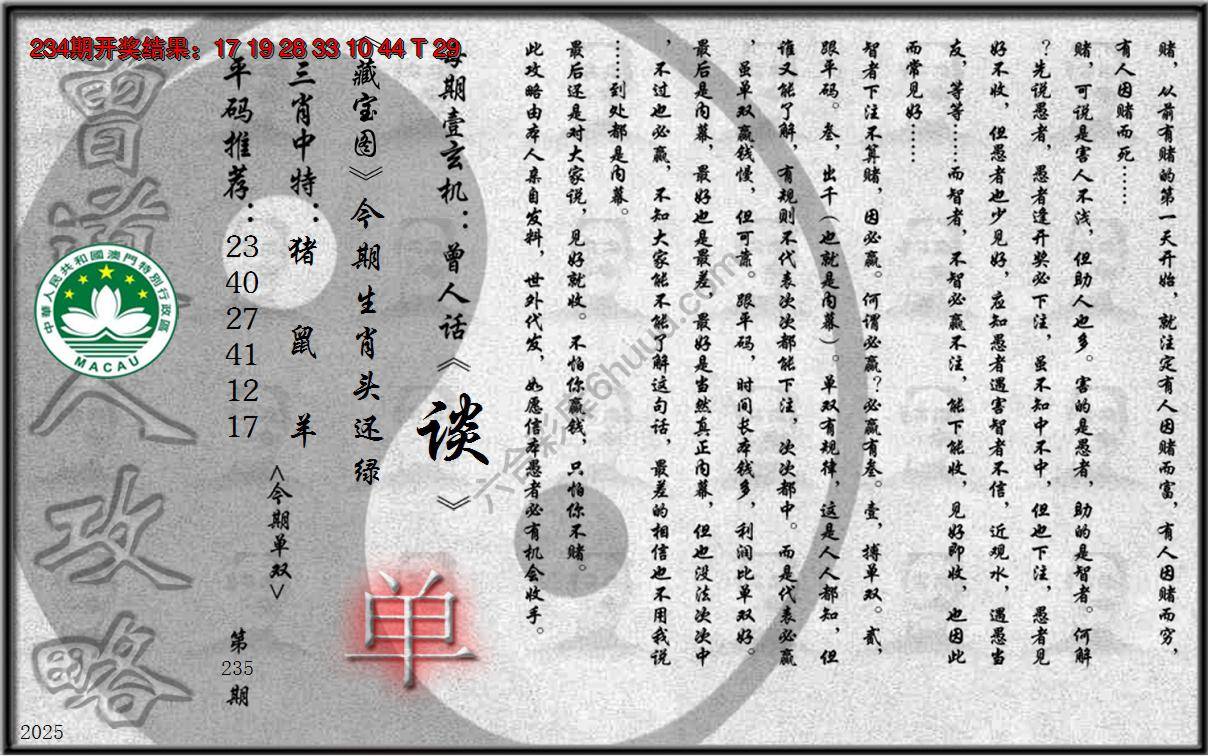 234期开奖结果：17 19 28 33 10 44 T 29
赌，从前有赌的第一天开始，就注定有人因赌而富，有人因赌而穷，
有人因赌而死……
赌，可说是害人不浅，但助人也多。害的是愚者，助的是智者。何解
？先说愚者，愚者逢开奖必下注，虽不知中不中，但也下注，愚者见
好不收，但愚者也少见好，应知愚者遇害智者不信，近观水，遇愚当
友，等等……而智者，不智必赢不注，能下能收，见好即收，也因此
而常见好……
智者下注不算赌，因必赢。何谓必赢？必赢有叁。壹，搏单双。贰，
跟平码。叁，出千（也就是内幕）。单双有规律，这是人人都知，但
谁又能了解，有规则不代表次次都能下注，次次都中。而是代表必赢
，虽单双赢钱慢，但可靠。跟平码，时间长本钱多，利润比单双好。
最后是内幕，最好也是最差，最好是当然真正内幕，但也没法次次中
，不过也必赢，不知大家能不能了解这句话，最差的相信也不用我说
……到处都是内幕。
最后还是对大家说，见好就收。不怕你赢钱，只怕你不赌。
此攻略由本人亲自发料，世外代发，如愿信本愚者必有机会收手。
每期壹玄机：曾人话《谈》
《藏宝图》今期生肖头还绿
单
三肖中特：猪 鼠 羊
<今期单双>
平码推荐：
23
40
27
41
12
17
第
235
期
曾道人攻略
中華人民共和國澳門特別行政區
MACAU
六合彩库6huuu.com
2025